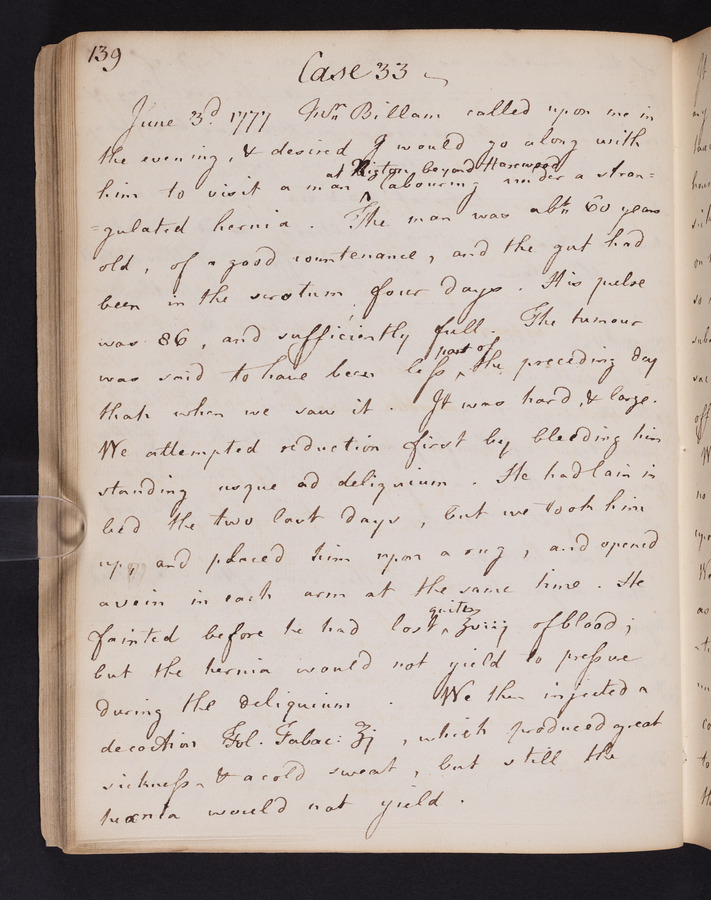 139
Case 33
June 3d. 1777 Mr Billam called upon me in
the evening, & desired I would go along with
at Rigton beyond Harewood
him to visit a man ^ labouring under a stran=
=gulated hernia. The man was abt 60 years
old, of a good countenance, and the gut had
been in the scrotum four days. His pulse
was 86, and sufficiently full. The tumour
part of
was said to have been less ^ the preceding day
than when we saw it. It was hard, & large.
We attempted reduction first by bleeding him
standing usque ad deliquium. He had lain in
bed the two last days, but we took him
up, and placed him upon a rug, and opened
a vein in each arm at the same time. He
quite
fainted before he had lost ^ ℥viij of blood;
but the hernia would not yield to pressure
during the deliquium. We then injected a
decoction Fol. Tabac: ʒj, which produced great
sickness & a cold sweat, but still the
hernia would not yield.